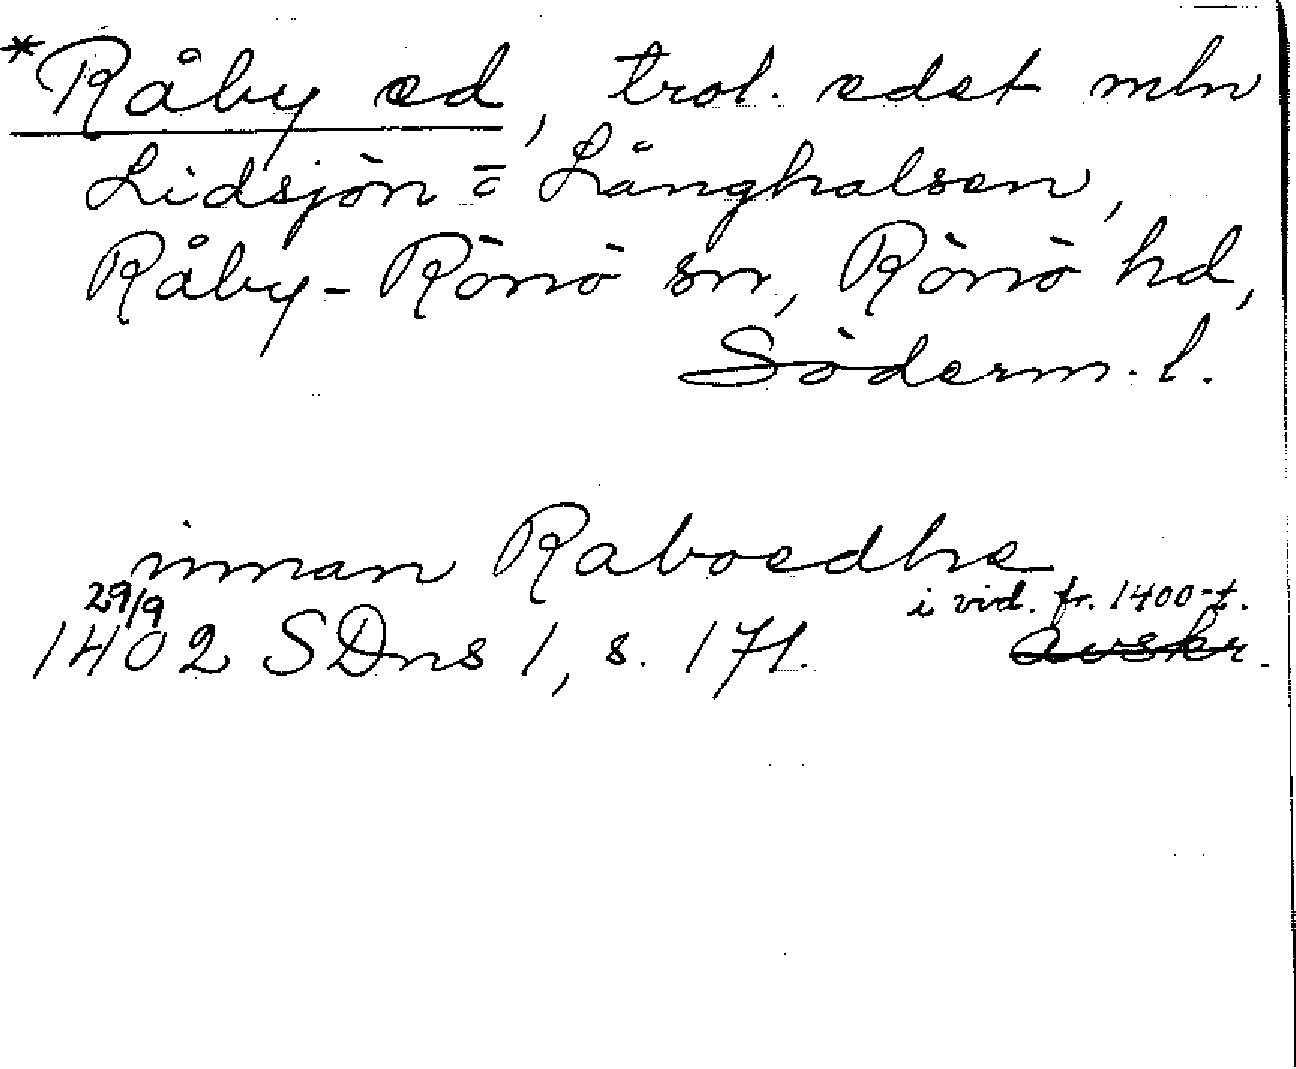 *Råby ed, trol. edet mln
Lidsjön o Långhalsen,
Råby-Rönö sn, Rönö hd,
Söderm. l.
innan Raboedhe
29/9 i vid. fr. 1400-t.
1402 SDns 1, s. 171. avskr.